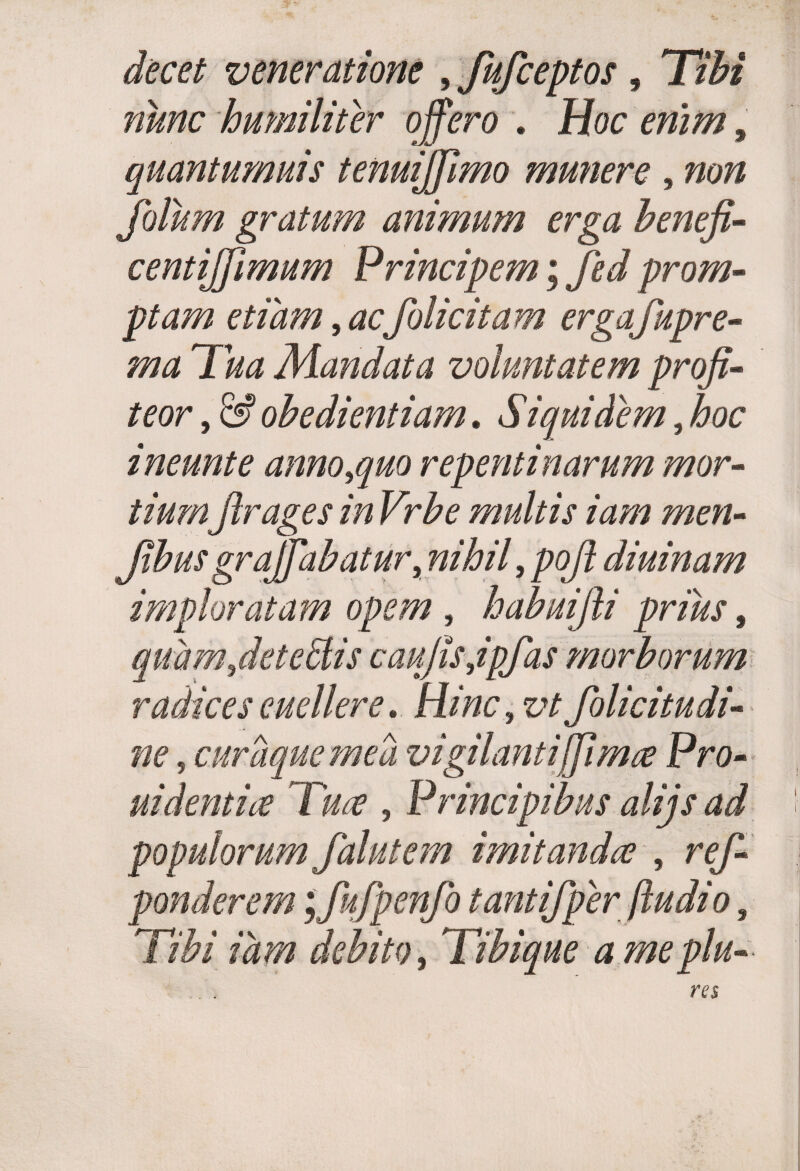 decet veneratione , ſuſceptos , Tibi
nùnc humilitèr offero . Hoc enim ,
quantumuis tenuiſſimo munere , non
ſolùm gratum animum erga benefi-
centiſſimum Principem ; ſed prom-
ptam etiàm , ac ſolicitam erga ſupre-
ma Tua Mandata voluntatem profi-
teor , & obedientiam . Siquidèm , hoc
ineunte anno , quo repentinarum mor-
tium ſtrages in Vrbe multis iam men-
ſibus graſſabatur , nihil , poſt diuinam
imploratam opem , habuiſti priùs ,
quàm , detectis cauſis , ipſas morborum
radices euellere . Hinc , vt ſolicitudi-
ne , curâque meâ vigilantiſſimæ Pro-
uidentiæ Tuæ , Principibus alijs ad
populorum ſalutem imitandæ , reſ-
ponderem ; ſuſpenſo tantiſpèr ſtudio ,
Tibi iàm debito , Tibique a me plu-
res